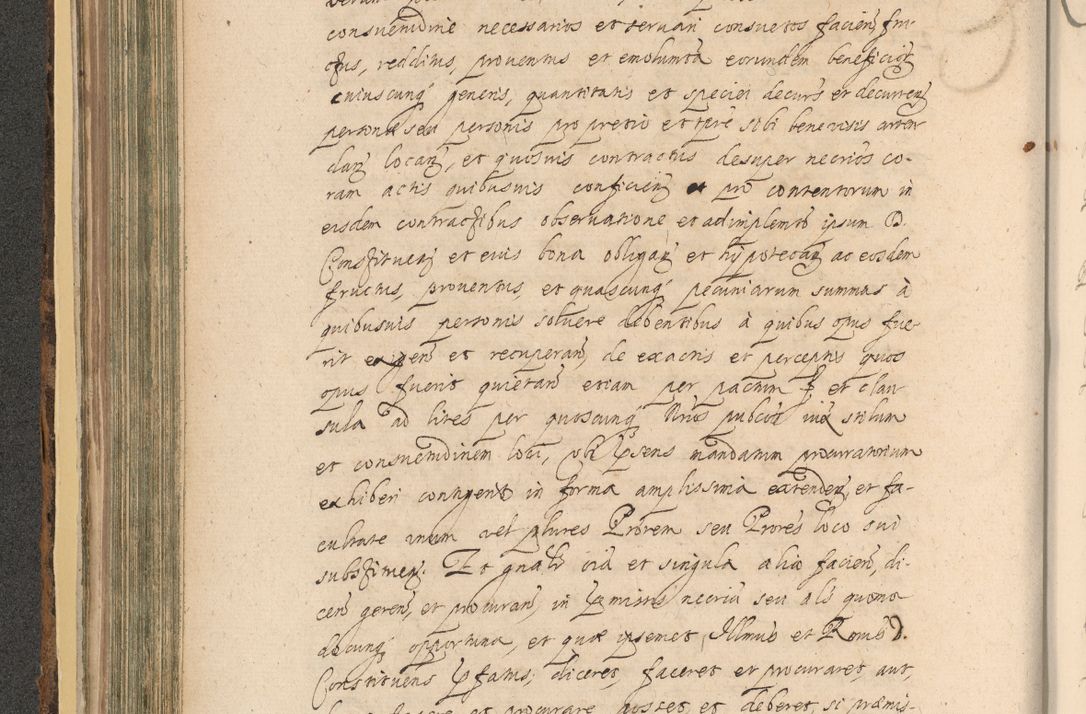 consuetudine necessarios et servari consuetos facien̄, fru-
ctus, redditus, proventus et emolumta eorundem beneficior
cuiuscunq generis, quantitatis et speciei decurs et decurren
personæ seu personis pro pretio et tpre sibi benevisis arren
dan̄ locan̄, et quosvis contractus desuper necrios co-
ram actis quibusvis conficien̄ et pro contentorum in
eisdem contractibus observatione et adimplemto ipsum D.
Constituen̄ et eius bona obligan̄ et hypotecan̄ ac eosdem
fructus, proventus, et quascunq pecuniarum summas à
quibusvis personis solvere debentibus à quibus opus fue-
rit exigen̄ et recuperan̄, de exactis et perceptis quos
opus fuerit quietan̄ etiam per pactum et clau
sula ad lites per quoscunq Nrios pubcos iuxa stilum
et consuetudinem loci, ubi psens mandatum procuratorium
exhiberi contigerit in forma amplissima extenden̄, et fa-
cultate unum vel plures Prorem seu Prores loco sui
substituen̄. Et gnalr oia et singula alia facien̄, di-
cen̄ geren̄, et procuran̄, in pmissis necria seu als quomo
docunq opportuna, et quæ ipsemet Illmus et Rmus D.
Constituens pfatus, diceret, faceret et procuraret, aut,
facere et procurare posset, et deberet, si præmis-